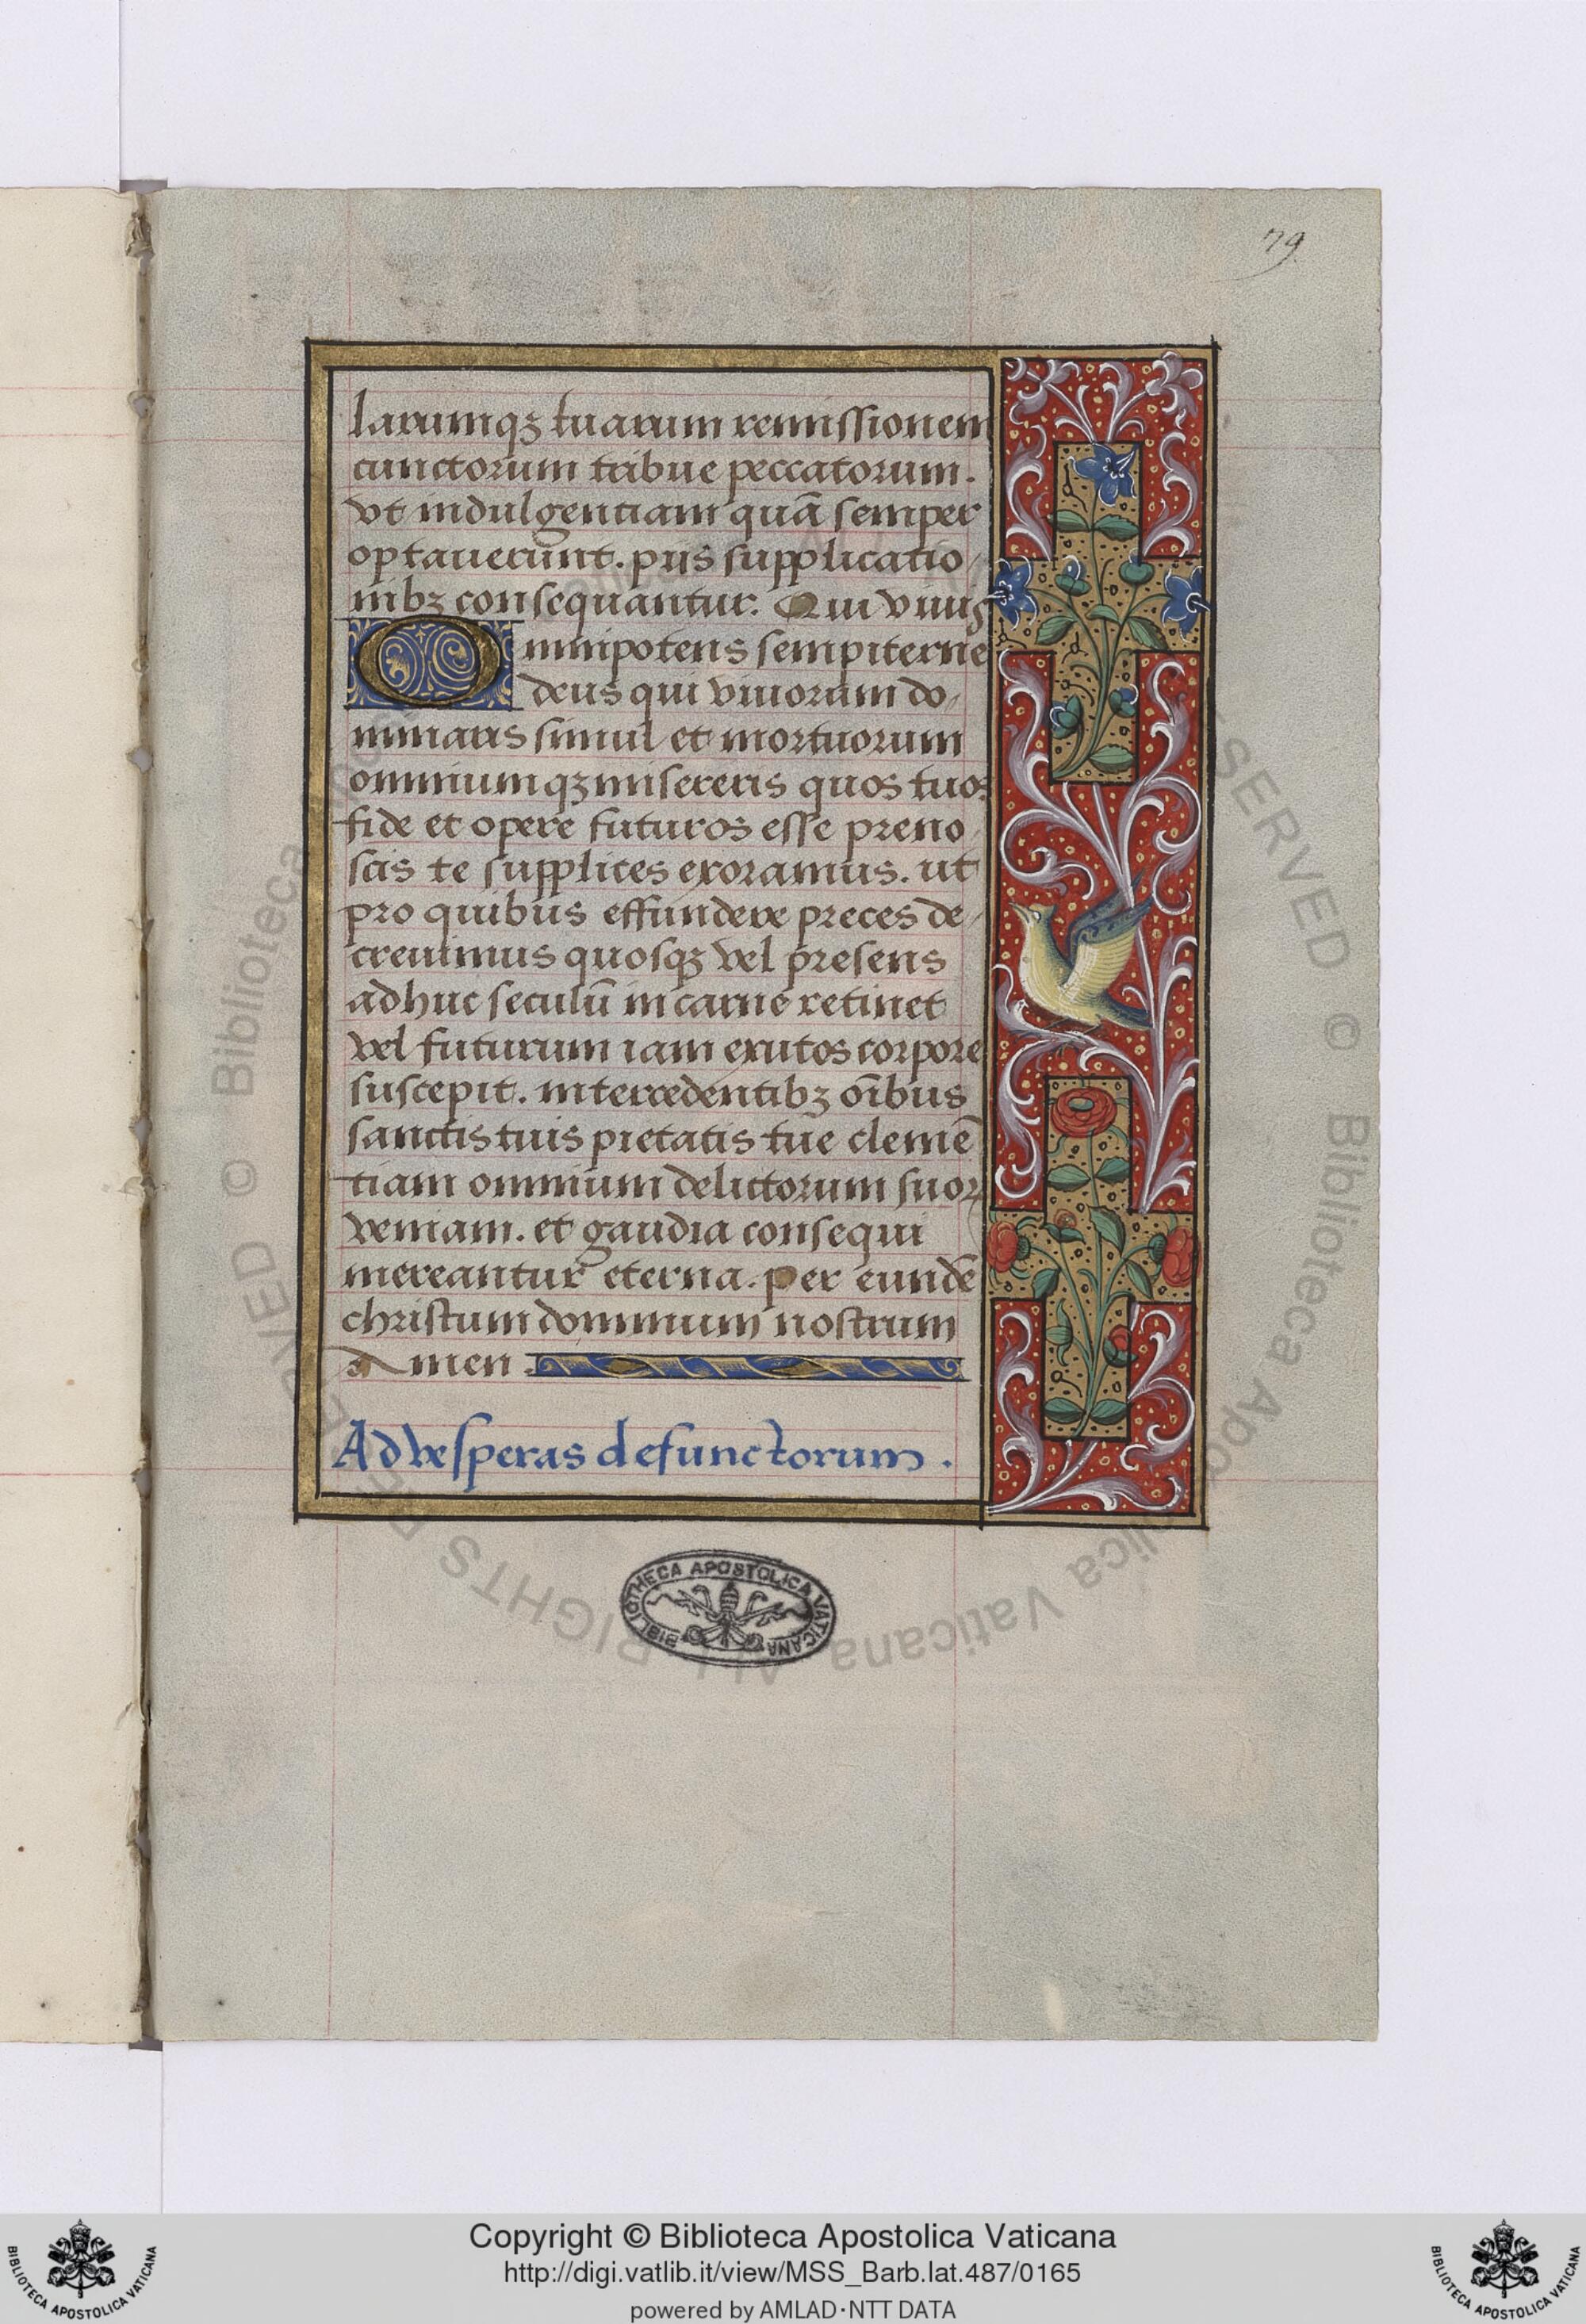 79
larumqꝫ tuarum remissionem
cunctorum tribue peccatorum.
vt indulgentiam quā semper
optauerunt. piis supplicatio
nibꝫ consequantur. Qui viuis
Omnipotens sempiterne
deus qui viuorum do
minaris simul et mortuorum
omniumqꝫ misereris quos tuos
fide et opere futuros esse preno
scis te supplices exoramus. ut
pro quibus effundere preces de
creuimus quosqꝫ vel presens
adhuc seculū in carne retinet
vel futurum iam exutos corpore
suscepit. intercedentibꝫ oībus
sanctis tuis pietatis tue clemē
tiam omnium delictorum suoꝝ
veniam. et gaudia consequi
mereantur eterna. Per eundē
christum dominum nostrum
Amen.
Ad vesperas defunctorum.
BIBLIOTHECA APOSTOLICA VATICANA
Copyright © Biblioteca Apostolica Vaticana
http://digi.vatlib.it/view/MSS_Barb.lat.487/0165
powered by AMLAD·NTT DATA
BIBLIOTECA APOSTOLICA VATICANA
BIBLIOTECA APOSTOLICA VATICANA